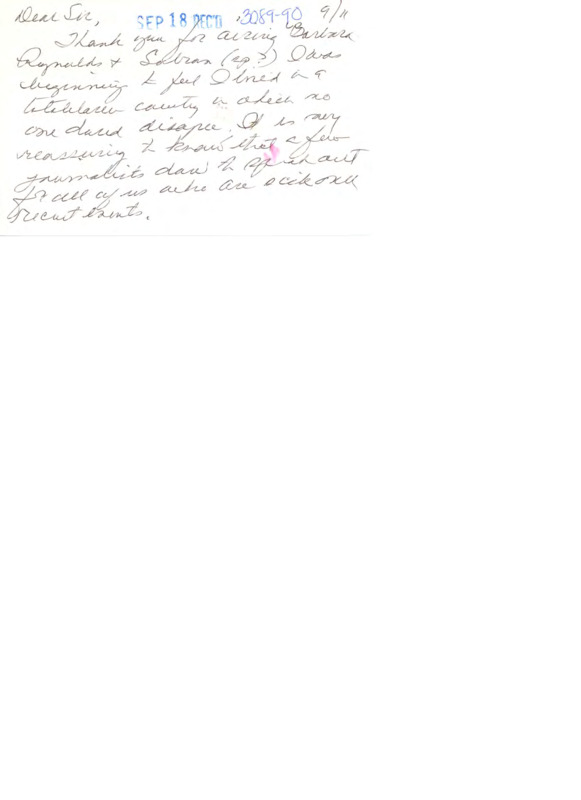 Dear Sir, SEP 18 REC'D 3089-90 9/11
Thank you for airing Barbara
Reynolds + Sobran (sp?) I was
beginning to feel I lived in a
country in which no
one dared disagree. It is very
reassuring to know that a few
journalists dare to speak out
for all of us who are
recent events.